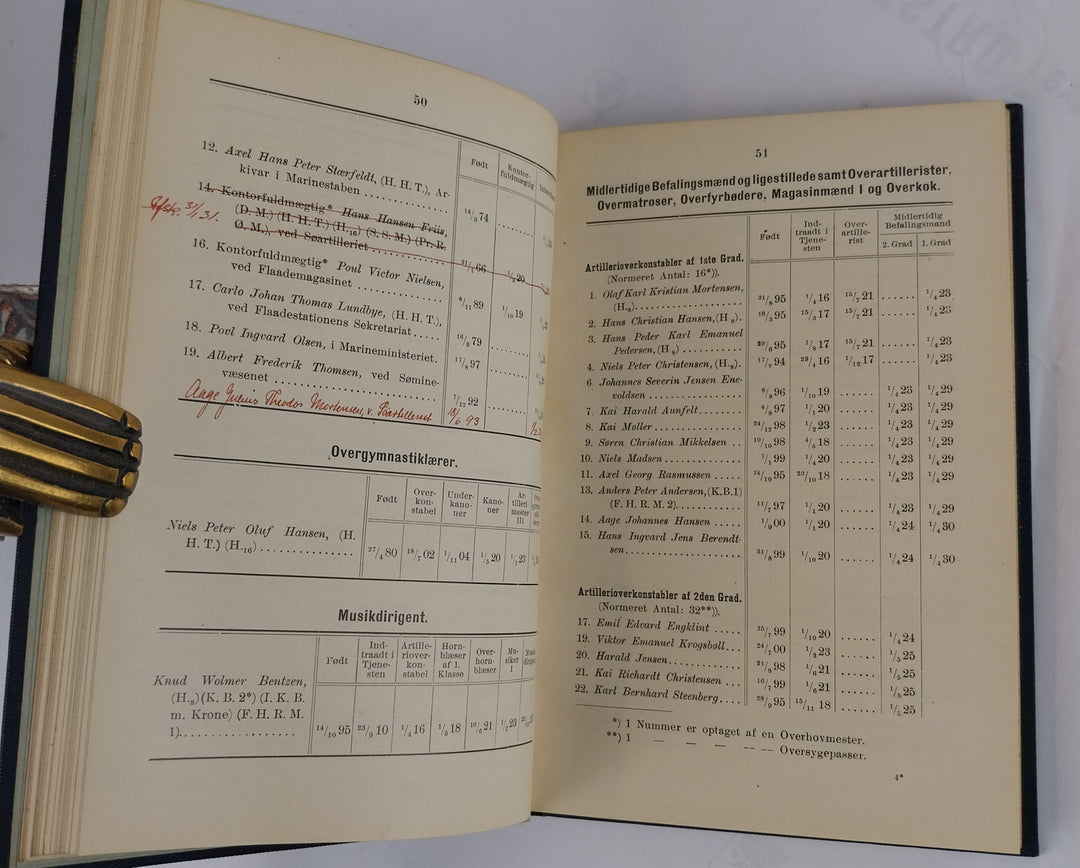 50
Født
Kontor-
fuldmægtig
12. Axel Hans Peter Stærfeldt, (H. H. T.), Ar-
kivar i Marinestaben 14/9 74
14. Kontorfuldmægtig* Hans Hansen Friis,
(D. M.) (H. H. T.) (H.16) (S. S. M.) (Pr. R.
Ø. M.), ved Søartilleriet 66 20
31/1 31.
16. Kontorfuldmægtig* Poul Victor Nielsen,
ved Flaademagasinet 8/11 89 1/10 19
17. Carlo Johan Thomas Lundbye, (H. H. T.),
ved Flaadestationens Sekretariat 16/6 79
18. Povl Ingvard Olsen, i Marineministeriet. 17/8 97
19. Albert Frederik Thomsen, ved Sømine-
væsenet 7/12 92
Aage Theodor Mortensen, v. Søartilleriet 18/6 93
Overgymnastiklærer.
Født
Over-
kon-
stabel
Under-
kano-
ner
Kano-
ner
Ar-
tilleri-
mester
III
Niels Peter Oluf Hansen, (H.
H. T.) (H.16) 27/4 80 18/7 02 1/11 04 1/5 20 1/2 23
Musikdirigent.
Født
Ind-
traadt i
Tjene-
sten
Artille-
riover-
kon-
stabel
Horn-
blæser
af 1.
Klasse
Over-
horn-
blæser
Mu-
siker
I
Knud Wolmer Bentzen,
(H.8) (K. B. 2*) (I. K. B.
m. Krone) (F. H. R. M.
1) 14/10 95 23/9 10 1/4 16 1/5 18 10/6 21 1/2 23
51
Midlertidige Befalingsmænd og ligestillede samt Overartillerister,
Overmatroser, Overfyrbødere, Magasinmænd I og Overkok.
Født
Ind-
traadt i
Tjene-
sten
Over-
artille-
rist
Midlertidig
Befalingsmand
2. Grad 1. Grad
Artillerioverkonstabler af 1ste Grad.
(Normeret Antal: 16*)).
1. Olaf Karl Kristian Mortensen,
(H.8) 31/8 95 1/4 16 15/7 21 ...... 1/4 23
2. Hans Christian Hansen, (H 8). 18/3 95 15/3 17 15/7 21 ...... 1/4 23
3. Hans Peder Karl Emanuel
Pedersen, (H 8) 29/6 95 1/8 17 15/7 21 ...... 1/4 23
4. Niels Peter Christensen, (H.8). 17/7 94 23/4 16 1/12 17 ...... 1/4 23
6. Johannes Severin Jensen Ene-
voldsen 8/8 96 1/10 19 ...... 1/4 23 1/4 29
7. Kai Harald Aunfelt 4/8 97 1/1 20 ...... 1/4 23 1/4 29
8. Kai Møller 24/12 98 1/2 23 ...... 1/4 23 1/4 29
9. Søren Christian Mikkelsen 10/10 98 4/5 18 ...... 1/4 23 1/4 29
10. Niels Madsen 7/1 99 1/4 20 ...... 1/4 23 1/4 29
11. Axel Georg Rasmussen 24/10 95 23/10 18 ...... 1/4 23 1/4 29
13. Anders Peter Andersen, (K.B.1)
(F. H. R. M. 2) 11/7 97 1/1 20 ...... 1/4 23 1/4 29
14. Aage Johannes Hansen 1/9 00 1/1 20 ...... 1/4 24 1/4 30
15. Hans Ingvard Jens Berendt-
sen 31/8 99 1/10 20 ...... 1/4 24 1/4 30
Artillerioverkonstabler af 2den Grad.
(Normeret Antal: 32**)).
17. Emil Edvard Engklint 25/7 99 1/10 20 ...... 1/4 24
19. Viktor Emanuel Krogsbøll 24/7 00 1/2 23 ...... 1/5 25
20. Harald Jensen 21/8 98 1/6 21 ...... 1/5 25
21. Kai Richardt Christensen 16/7 99 1/6 21 ...... 1/5 25
22. Karl Bernhard Steenberg 28/9 95 15/11 18 ...... 1/5 25
*) 1 Nummer er optaget af en Overhovmester.
**) 1 — — — — — Oversygepasser.
4*